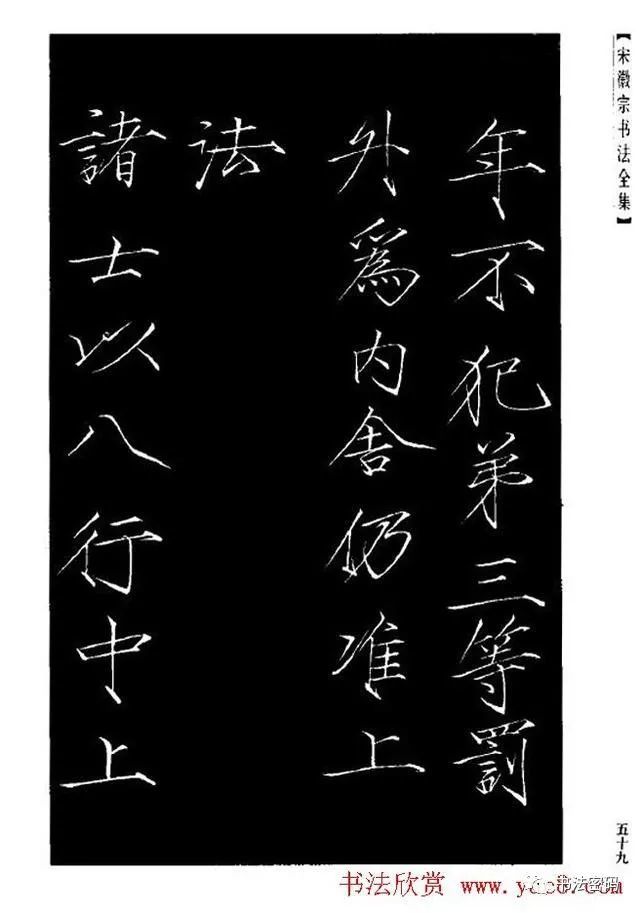 【宋徽宗书法全集】
年不犯弟三等罰
外爲內舍仍准上
法
諸士以八行中上
五十九
书法欣赏
书法密码